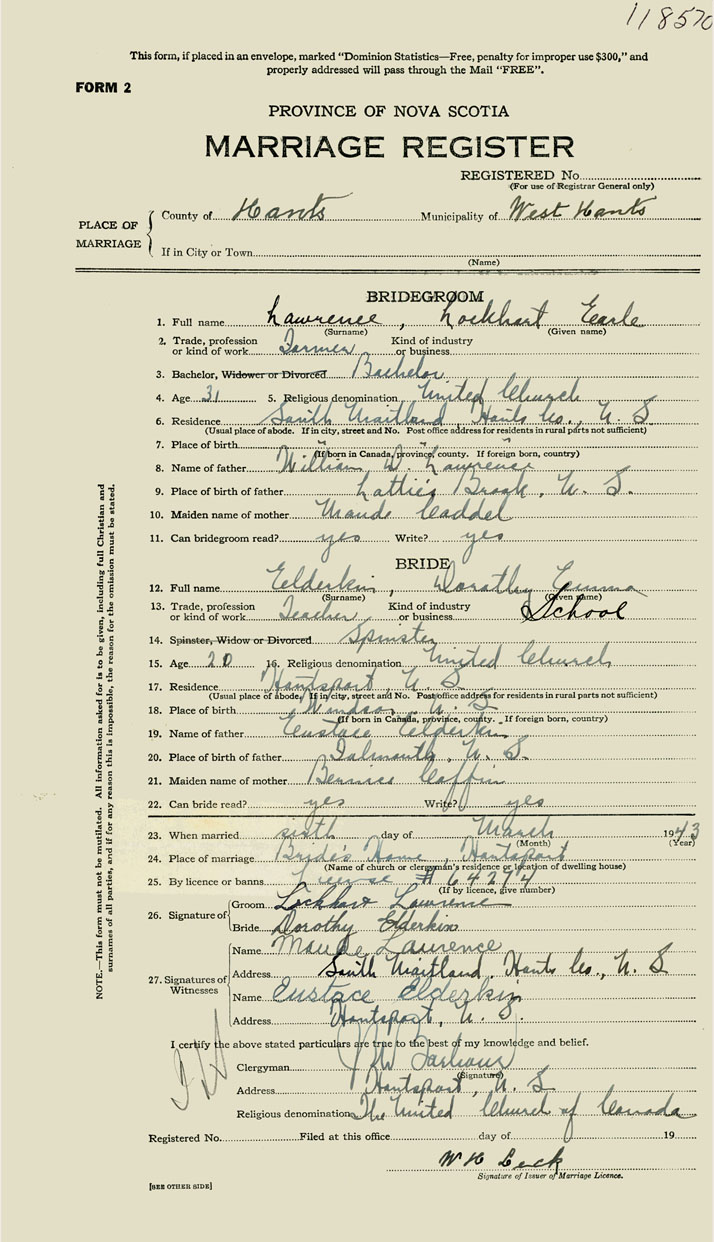 118570
This form, if placed in an envelope, marked “Dominion Statistics—Free, penalty for improper use $300,” and
properly addressed will pass through the Mail “FREE”.
FORM 2
PROVINCE OF NOVA SCOTIA
MARRIAGE REGISTER
REGISTERED No.
(For use of Registrar General only)
PLACE OF MARRIAGE
County of Hants Municipality of West Hants
If in City or Town
(Name)
BRIDEGROOM
1. Full name Lawrence, Lockhart Earle
(Surname) (Given name)
2. Trade, profession or kind of work Farmer Kind of industry or business
3. Bachelor, Widower or Divorced Bachelor
4. Age 31 5. Religious denomination United Church
6. Residence South Maitland Hants Co., N. S.
(Usual place of abode. If in city, street and No. Post office address for residents in rural parts not sufficient)
7. Place of birth " " "
(If born in Canada, province, county. If foreign born, country)
8. Name of father William D. Lawrence
9. Place of birth of father Lattie's Brook, N. S.
10. Maiden name of mother Maude Caddel
11. Can bridegroom read? yes Write? yes
BRIDE
12. Full name Eelderkin, Dorothy Emma
(Surname) (Given name)
13. Trade, profession or kind of work Teacher Kind of industry or business School
14. Spinster, Widow or Divorced Spinster
15. Age 20 16. Religious denomination United Church
17. Residence Hantsport, N. S.
(Usual place of abode. If in city, street and No. Post office address for residents in rural parts not sufficient)
18. Place of birth Windsor, N. S.
(If born in Canada, province, county. If foreign born, country)
19. Name of father Eustace Eelderkin
20. Place of birth of father Falmouth, N. S.
21. Maiden name of mother Bennice Coffin
22. Can bride read? yes Write? yes
23. When married sixth day of March 1943
(Month) (Year)
24. Place of marriage Bride's Home, Hantsport
(Name of church or clergyman's residence or location of dwelling house)
25. By licence or banns License # 64294
(If by licence, give number)
26. Signature of
Groom Lockhart Lawrence
Bride Dorothy Elderkin
27. Signatures of Witnesses
Name Maude Lawrence
Address South Maitland, Hants Co., N. S.
Name Eustace Elderkin
Address Hantsport, N. S.
I certify the above stated particulars are true to the best of my knowledge and belief.
Clergyman
(Signature)
Address Hantsport, N. S.
Religious denomination The United Church of Canada
Registered No. Filed at this office day of 19
W H Leck
Signature of Issuer of Marriage Licence.
[SEE OTHER SIDE]
NOTE.—This form must not be mutilated. All information asked for is to be given, including full Christian and
surnames of all parties, and if for any reason this is impossible, the reason for the omission must be stated.